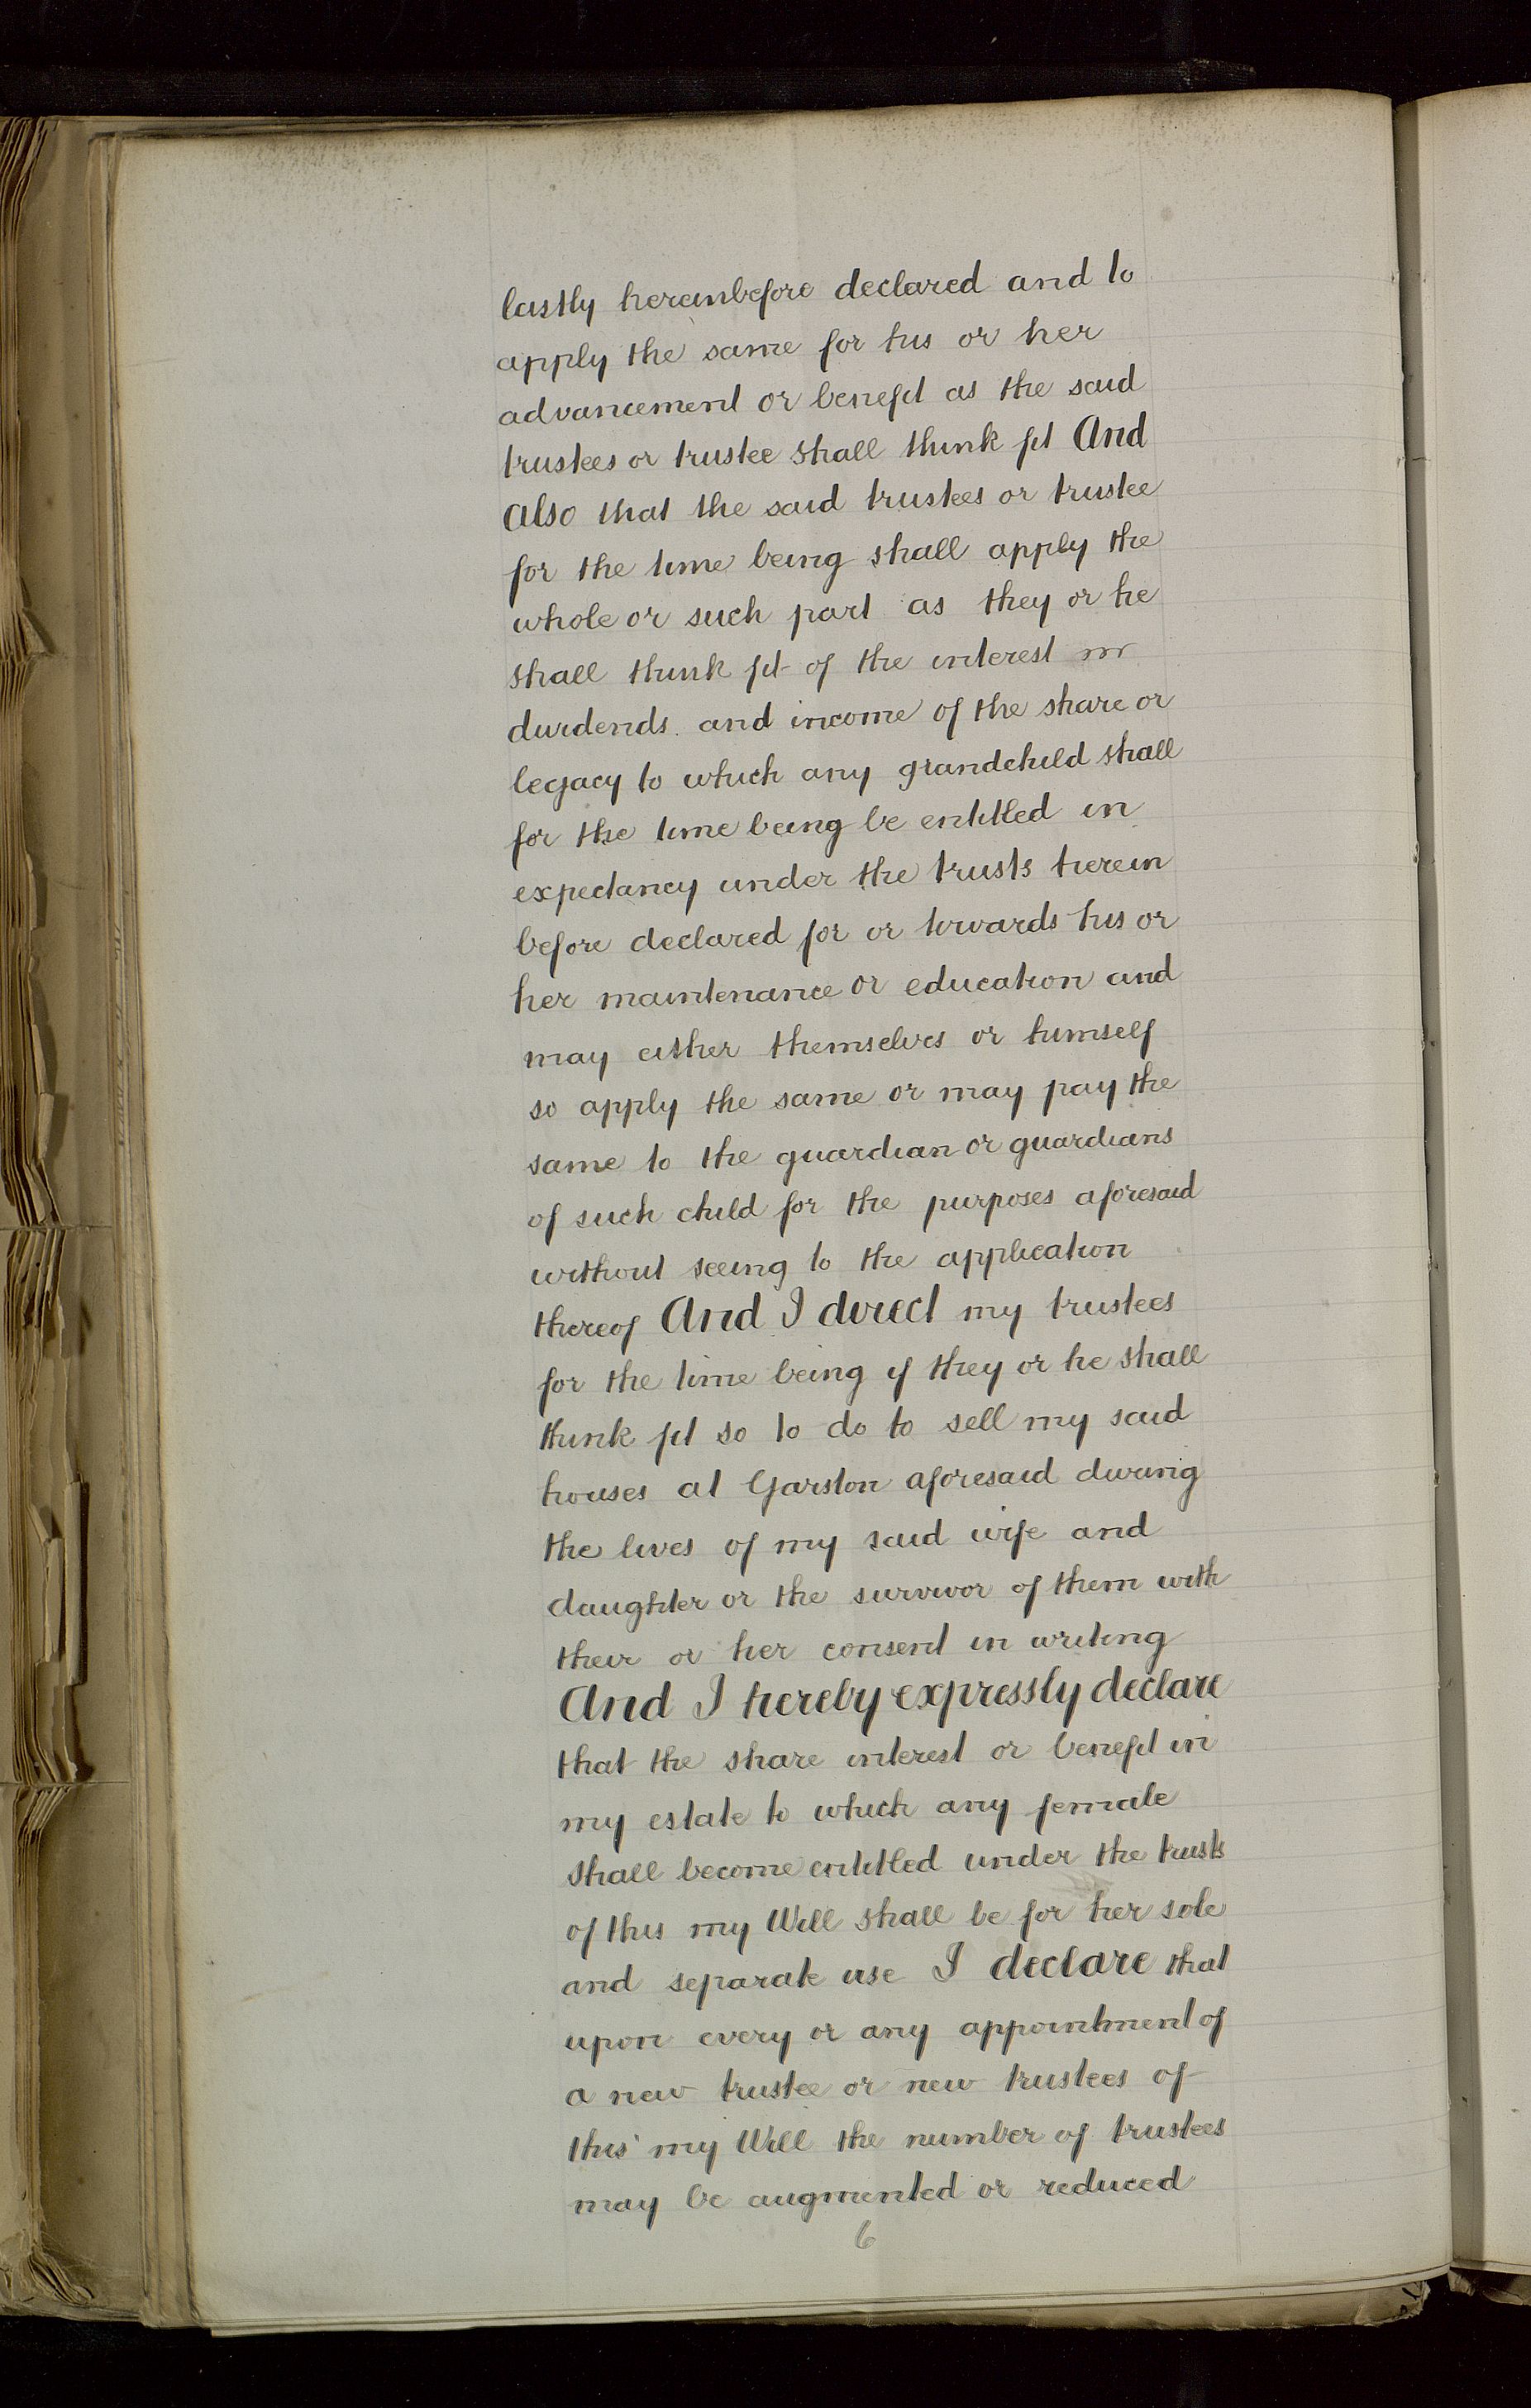 lastly hereinbefore declared and to
apply the same for his or her
advancement or benefit as the said
trustees or trustee shall think fit And
also that the said trustees or trustee
for the time being shall apply the
whole or such part as they or he
shall think fit of the interest
dividends and income of the share or
legacy to which any grandchild shall
for the time being be entitled in
expectancy under the trusts herein
before declared for or towards his or
her maintenance or education and
may either themselves or himself
so apply the same or may pay the
same to the guardian or guardians
of such child for the purposes aforesaid
without seeing to the application
thereof And I direct my trustees
for the time being if they or he shall
think fit so to do to sell my said
houses at Garston aforesaid during
the lives of my said wife and
daughter or the survivor of them with
their or her consent in writing
And I hereby expressly declare
that the share interest or benefit in
my estate to which any female
shall become entitled under the trusts
of this my Will shall be for her sole
and separate use I declare that
upon every or any appointment of
a new trustee or new trustees of
this my Will the number of trustees
may be augmented or reduced
6